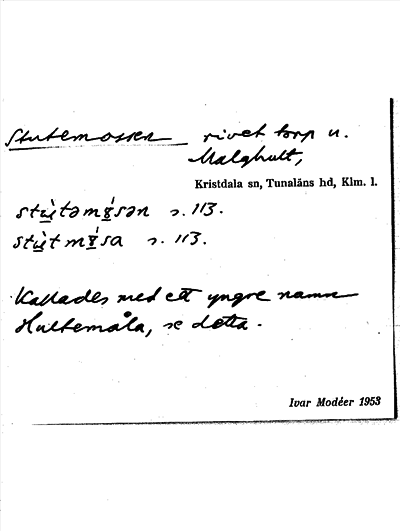 Stutemossen rivet torp u.
Malghult,
Kristdala sn, Tunaläns hd, Klm. l.
stùtəmósən s. 113.
stùtmósa s. 113.
Kallades med ett yngre namn
Hultemåla, se detta.
Ivar Modéer 1953